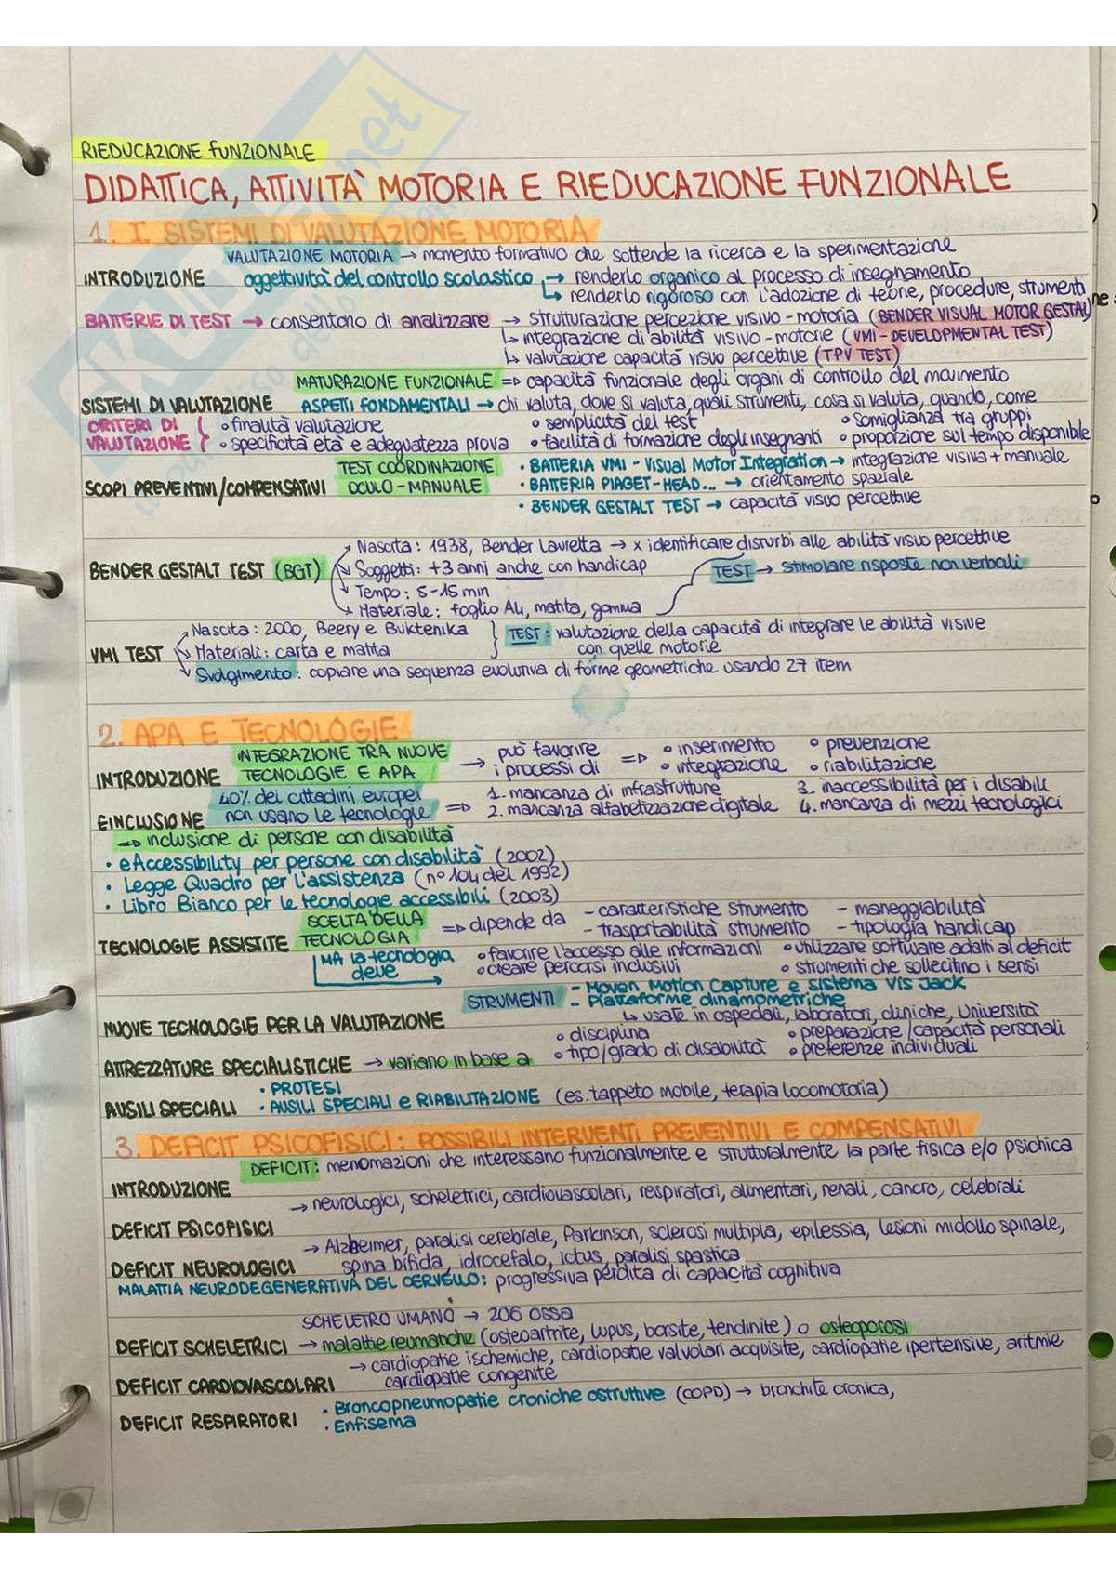 RIEDUCAZIONE FUNZIONALE
DIDATTICA, ATTIVITÀ MOTORIA E RIEDUCAZIONE FUNZIONALE
1. I SISTEMI DI VALUTAZIONE MOTORIA
VALUTAZIONE MOTORIA → momento formativo che sottende la ricerca e la sperimentazione
INTRODUZIONE oggettività del controllo scolastico → renderlo organico al processo di insegnamento
↳ renderlo rigoroso con l'adozione di teorie, procedure, strumenti
BATTERIE DI TEST → consentono di analizzare → strutturazione percezione visivo-motoria (BENDER VISUAL MOTOR GESTAL)
↳ integrazione di abilità visivo-motorie (VMI-DEVELOPMENTAL TEST)
↳ valutazione capacità visuo percettive (TPV TEST)
MATURAZIONE FUNZIONALE => capacità funzionale degli organi di controllo del movimento
SISTEMI DI VALUTAZIONE ASPETTI FONDAMENTALI → chi valuta, dove si valuta, quali strumenti, cosa si valuta, quando, come
CRITERI DI VALUTAZIONE { • finalità valutazione • semplicità del test • somiglianza tra gruppi
• specificità età e adeguatezza prova • facilità di formazione degli insegnanti • proporzione sul tempo disponibile
TEST COORDINAZIONE • BATTERIA VMI - Visual Motor Integration → integrazione visiva + manuale
SCOPI PREVENTIVI/COMPENSATIVI OCULO-MANUALE • BATTERIA PIAGET-HEAD... → orientamento spaziale
• BENDER GESTALT TEST → capacità visuo percettive
Nascita: 1938, Bender Lauretta → x identificare disturbi alle abilità visuo percettive
BENDER GESTALT TEST (BGT) Soggetti: +3 anni anche con handicap TEST → stimolare risposte non verbali
Tempo: 5-15 min
Materiale: foglio A4, matita, gomma
Nascita: 2000, Beery e Buktenika } TEST: valutazione della capacità di integrare le abilità visive
VMI TEST Materiali: carta e matita con quelle motorie
Svolgimento: copiare una sequenza evolutiva di forme geometriche usando 27 item
2. APA E TECNOLOGIE
INTEGRAZIONE TRA NUOVE → può favorire => • inserimento • prevenzione
INTRODUZIONE TECNOLOGIE E APA i processi di • integrazione • riabilitazione
40% dei cittadini europei => 1. mancanza di infrastrutture 3. inaccessibilità per i disabili
EINCLUSIONE non usano le tecnologie 2. mancanza alfabetizzazione digitale 4. mancanza di mezzi tecnologici
→ inclusione di persone con disabilità
• eAccessibility per persone con disabilità (2002)
• Legge Quadro per l'assistenza (n°104 del 1992)
• Libro Bianco per le tecnologie accessibili (2003)
SCELTA DELLA => dipende da - caratteristiche strumento - maneggiabilità
TECNOLOGIE ASSISTITE TECNOLOGIA - trasportabilità strumento - tipologia handicap
MA la tecnologia deve • favorire l'accesso alle informazioni • utilizzare software adatti al deficit
• creare percorsi inclusivi • strumenti che sollecitino i sensi
STRUMENTI - Moven Motion Capture e sistema Vis Jack
- Piattaforme dinamometriche
NUOVE TECNOLOGIE PER LA VALUTAZIONE ↳ usate in ospedali, laboratori, cliniche, Università
• disciplina • preparazione/capacità personali
ATTREZZATURE SPECIALISTICHE → variano in base a • tipo/grado di disabilità • preferenze individuali
• PROTESI
AUSILI SPECIALI • AUSILI SPECIALI e RIABILITAZIONE (es. tappeto mobile, terapia locomotoria)
3. DEFICIT PSICOFISICI: POSSIBILI INTERVENTI PREVENTIVI E COMPENSATIVI
DEFICIT: menomazioni che interessano funzionalmente e strutturalmente la parte fisica e/o psichica
INTRODUZIONE
→ neurologici, scheletrici, cardiovascolari, respiratori, alimentari, renali, cancro, celebrali
DEFICIT PSICOFISICI
→ Alzheimer, paralisi cerebrale, Parkinson, sclerosi multipla, epilessia, lesioni midollo spinale,
DEFICIT NEUROLOGICI spina bifida, idrocefalo, ictus, paralisi spastica
MALATTIA NEURODEGENERATIVA DEL CERVELLO: progressiva perdita di capacità cognitiva
SCHELETRO UMANO → 206 ossa
DEFICIT SCHELETRICI → malattie reumatiche (osteoartrite, lupus, borsite, tendinite) o osteoporosi
→ cardiopatie ischemiche, cardiopatie valvolari acquisite, cardiopatie ipertensive, aritmie
DEFICIT CARDIOVASCOLARI cardiopatie congenite
• Broncopneumopatie croniche ostruttive (COPD) → bronchite cronica,
DEFICIT RESPIRATORI • Enfisema